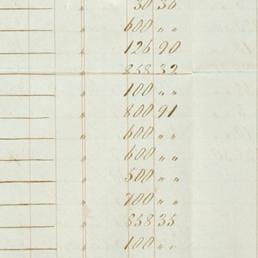 " 30 36
" 600 " "
" 126 90
" 858 32
" 100 " "
" 800 91
" 600 " "
" 600 " "
" 500 " "
" 700 " "
" 858 35
" 100 " "